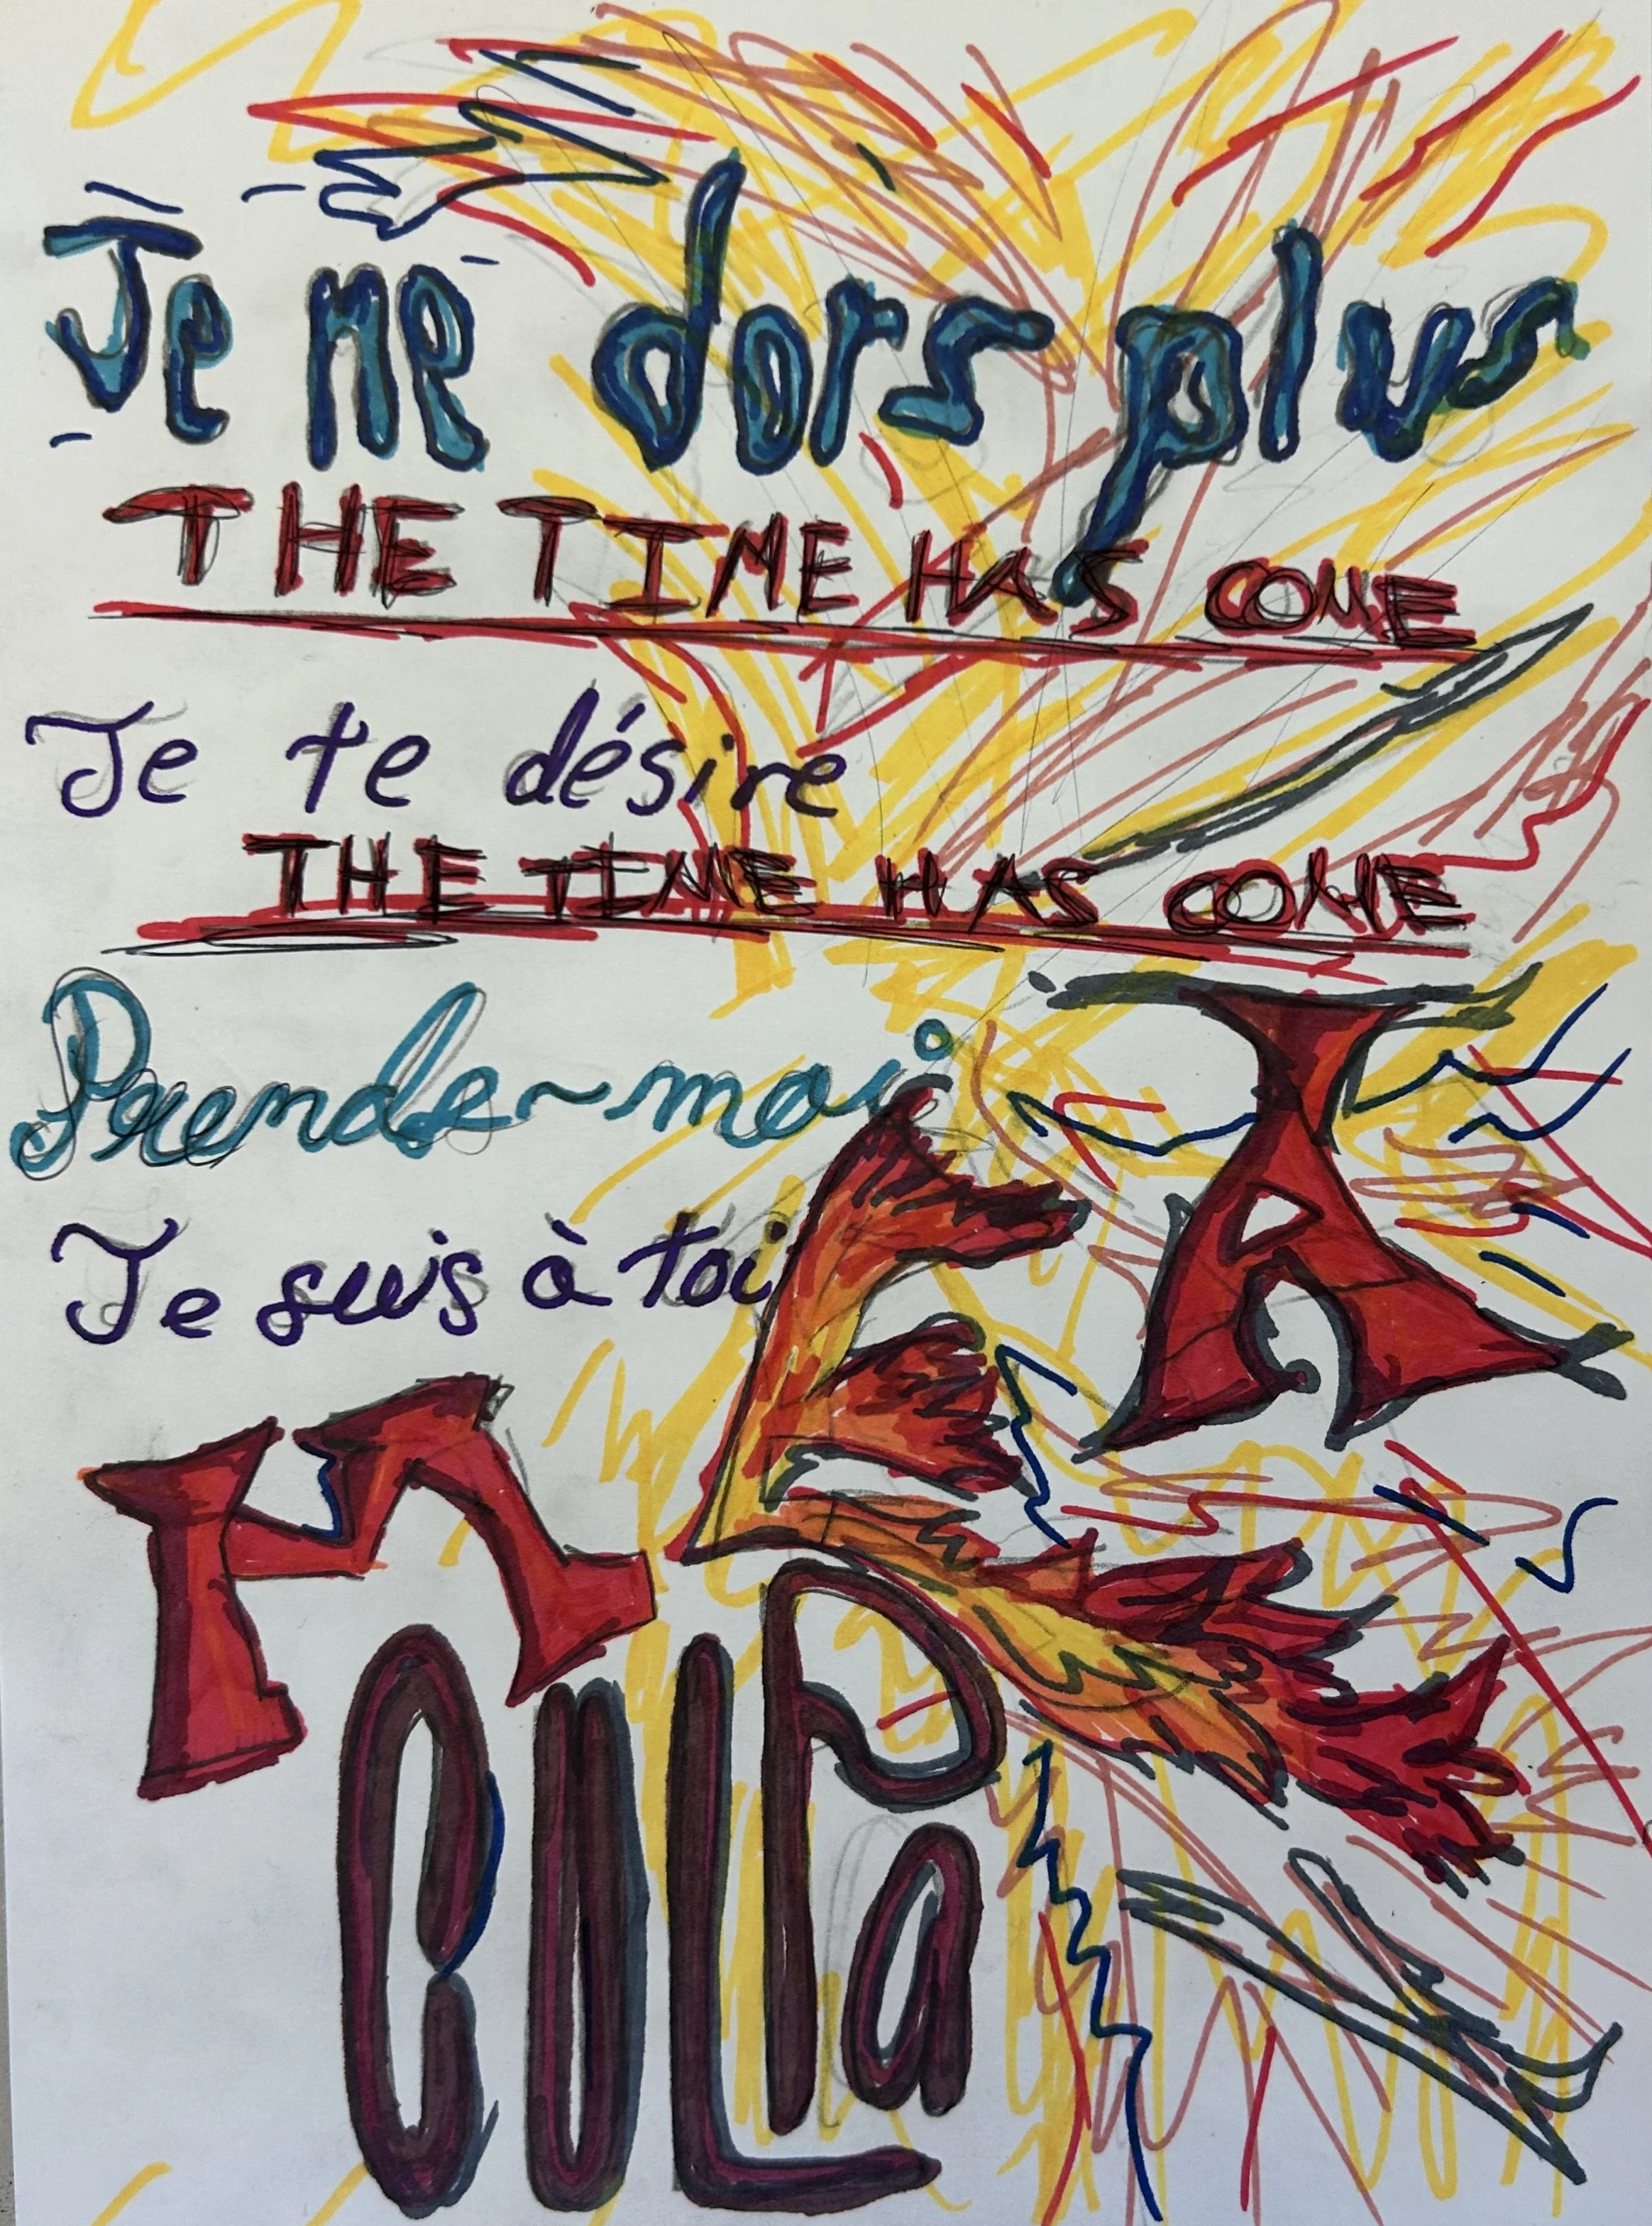 Je ne dors plus
THE TIME HAS COME
Je te désire
THE TIME HAS COME
Prends-moi
Je suis à toi
MEA
CULPa